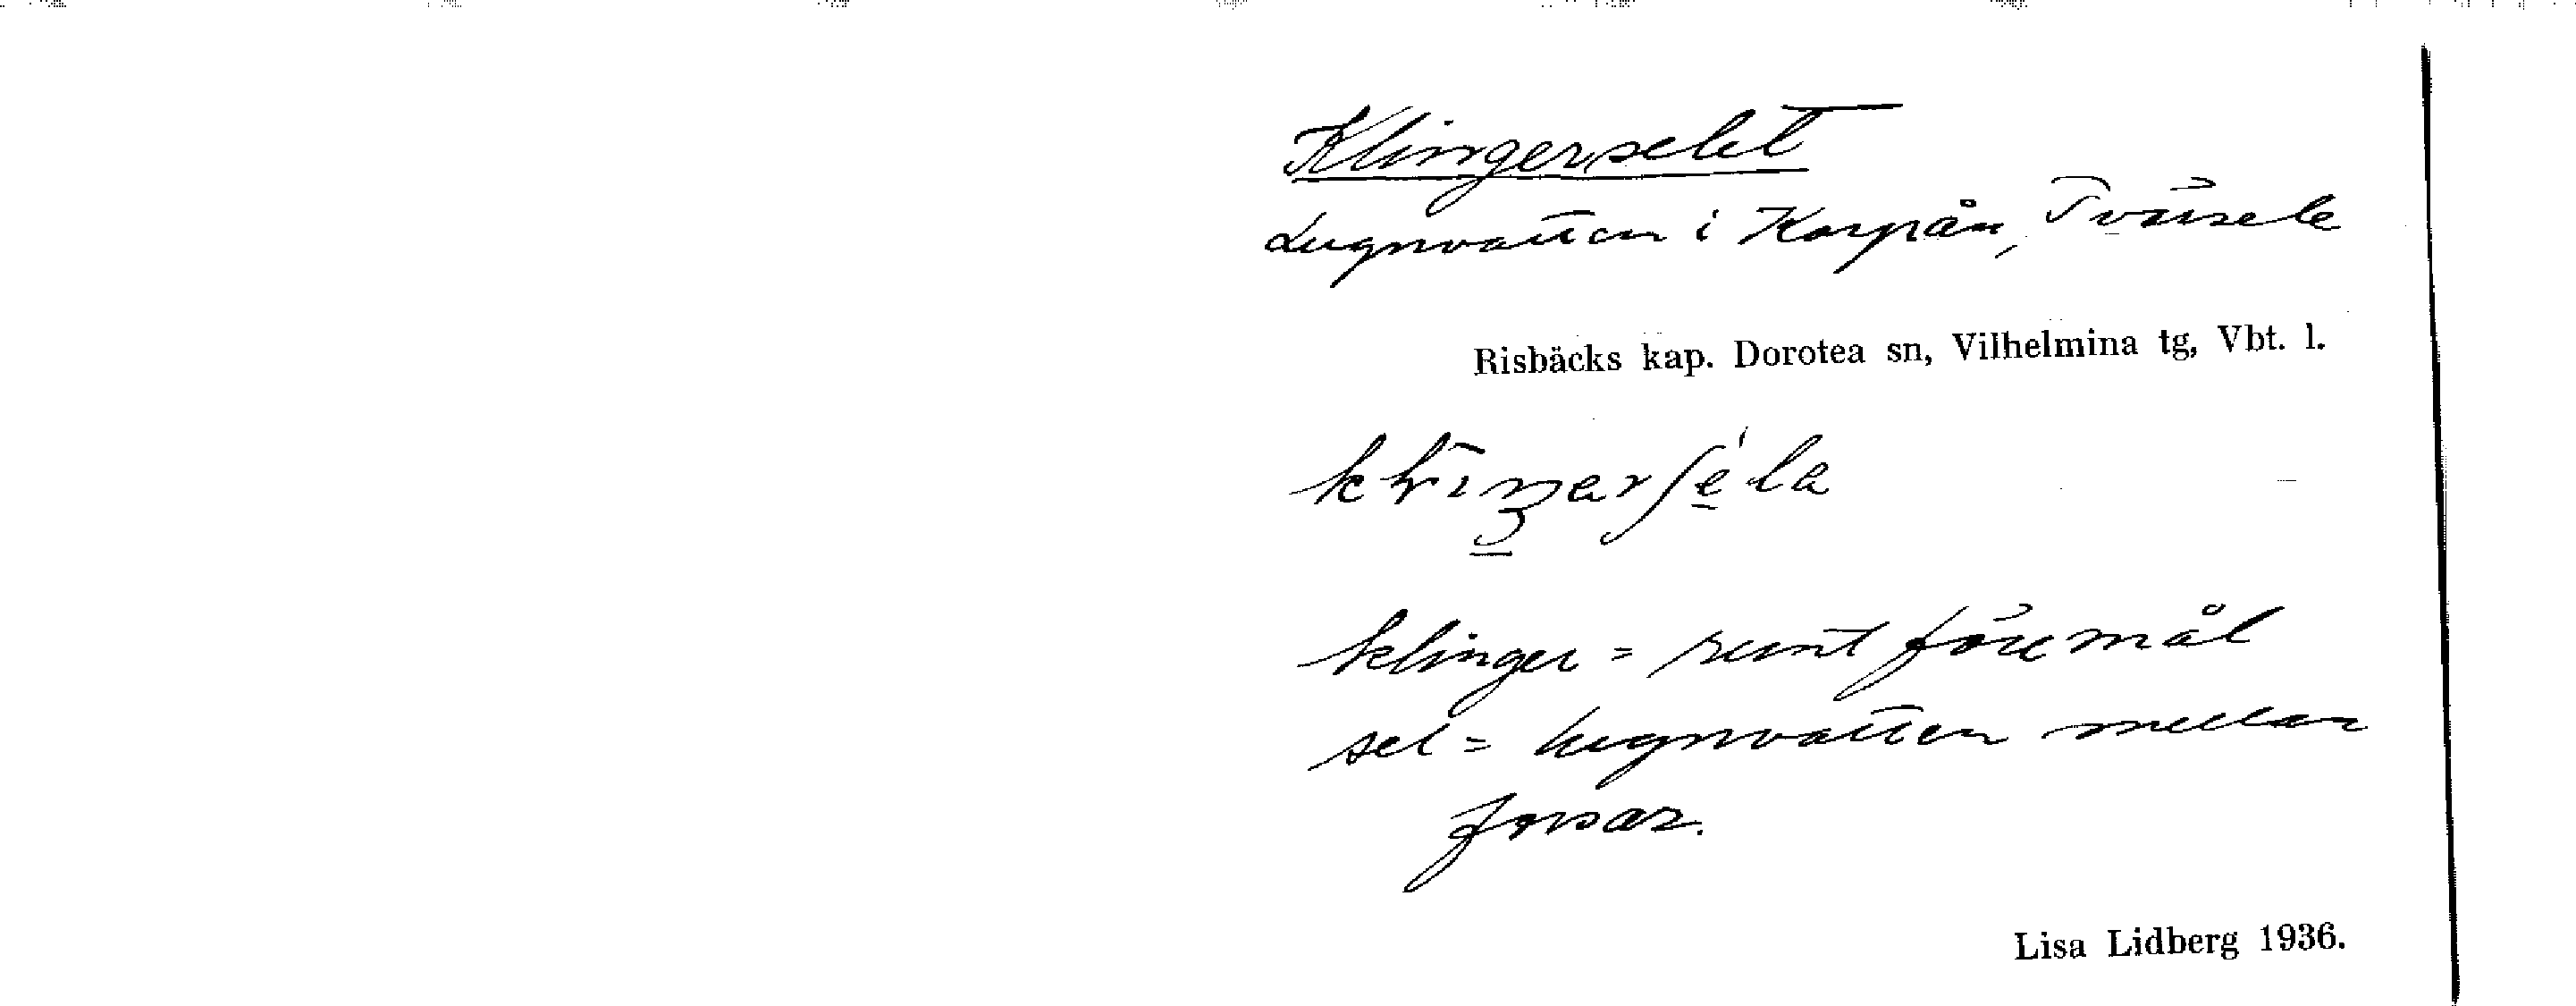 Klingerselet
Lugnvatten i Korpån, Tväsele
Risbäcks kap. Dorotea sn, Vilhelmina tg, Vbt. l.
klinger = runt föremål
sel = lugnvatten mellan
forsar.
Lisa Lidberg 1936.